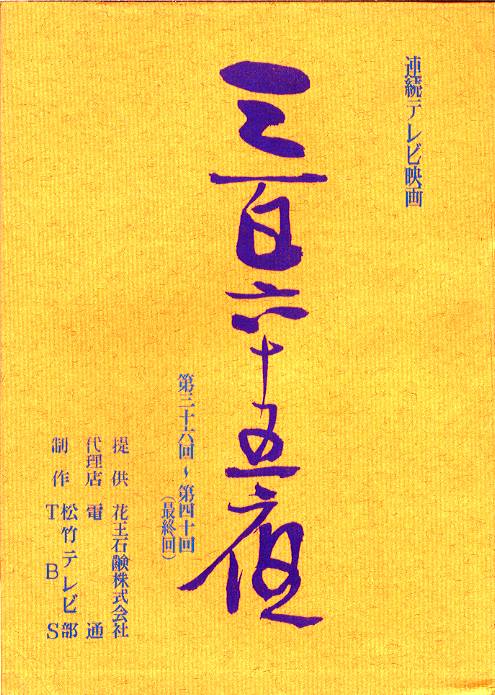 連続テレビ映画
三百六十五夜
第三十六回～第四十回
（最終回）
提供 花王石鹸株式会社
代理店 電通
制作 松竹テレビ部
TBS